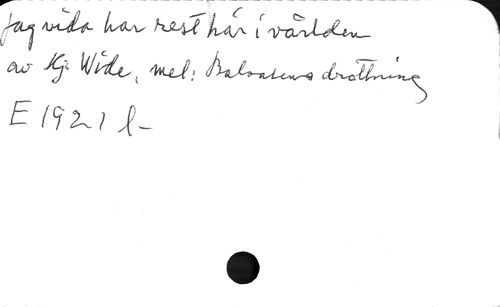 Jag vida har rest här i världen
av Hj. Wide, mel: Balsalens drottning
E 1921 l-